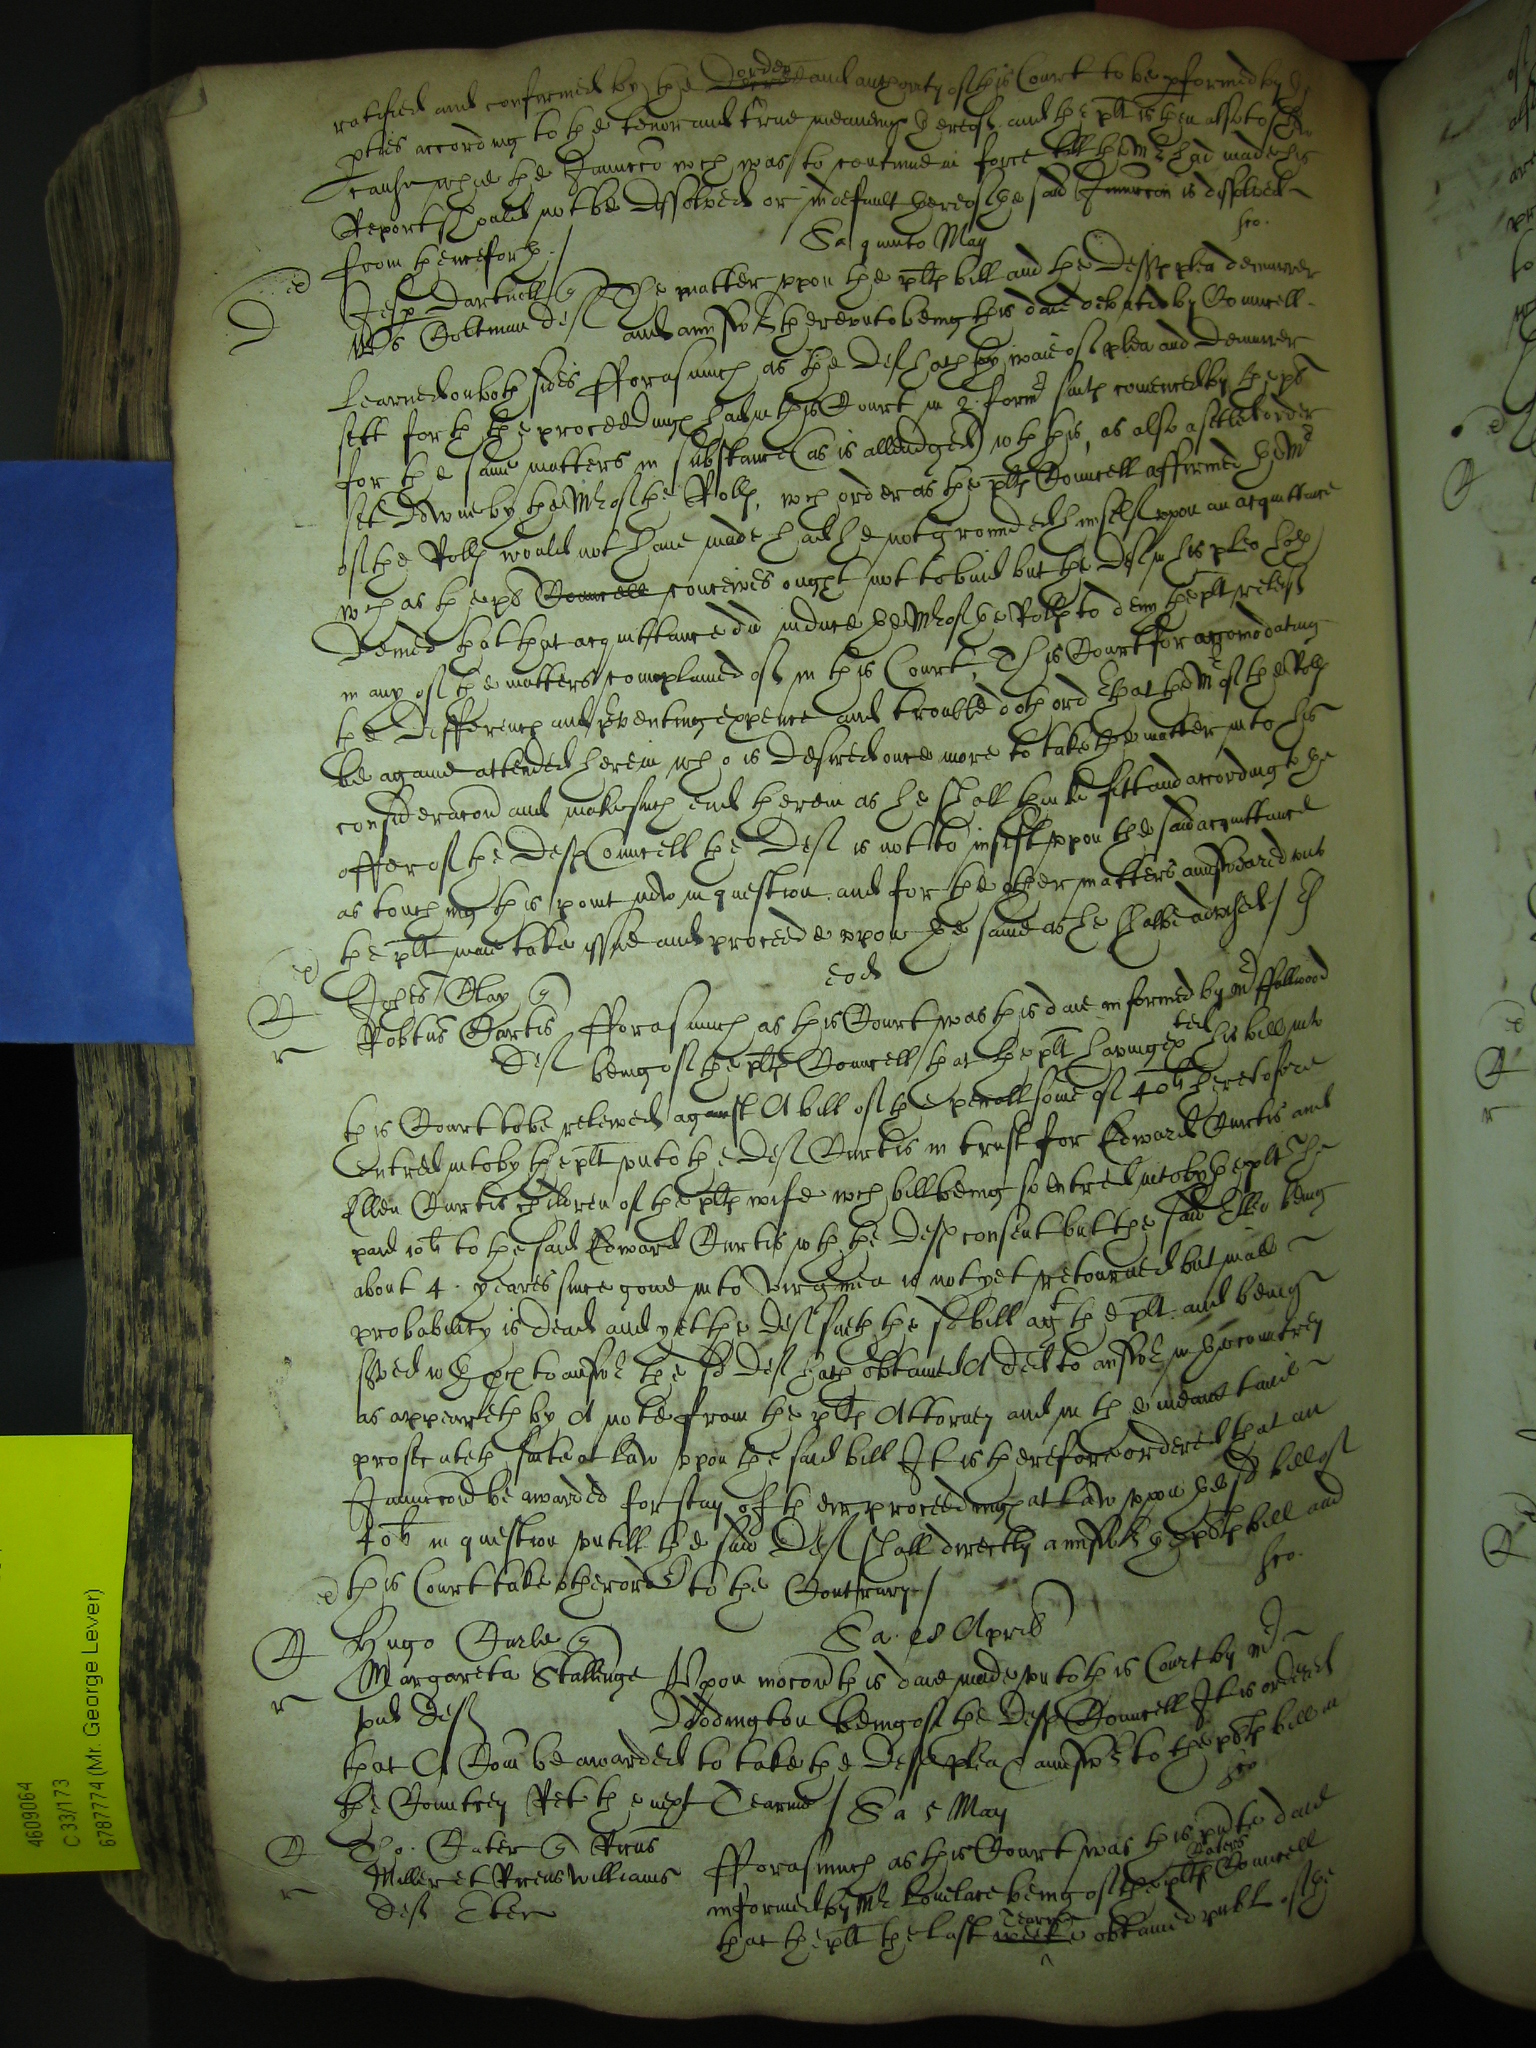 ratified and confirmed by the Decree order and authority of this Court to be pformed by the
pties according to the tenor and true meaning thereof. and the plt is then also to shew
cause why the Iniuncon wch was to contynue in force till the Mr had made his
Report should not be dissolved or in default thereof the said Iniuncon is dissolved
from henceforth./
Sa quinto May
Jesp Dartnell q The matter vpon the plts bill and the Defts plea demurrer
Coltman def and answr therevnto being this daie debated by Councell
learned on both sides fforasmuch as the Def hath by waie of plea and demurrer
sett forth the proceedings had in this Court in 2 form suits comenced by the pet
for the same matters in substance (as is alleadged) wth this, as also a setled order
set downe by the Mr of the Rolls, wch order as the plts Councell affirmed the Mr
of the Rolls would not haue made had he not grounded himself vpon an acquittance
wch as the pet Councell conceives ought not to bind but the Def in his plea hath
denied that that acquittance did induce the Mr of the Rolls to deny the plt releif
in any of the matters complained of in this Court, This Court for accomodating
the Differences and preventing expence and trouble doth ord that the Mr of the Rolls
be againe attended herein who is desired once more to take the matter into his
consideracon and make such end therein as he shall thinke fitt and according to the
offer of the Defts Councell the Def is not to insist vpon the said acquittance
as touching this point now in question. and for the other matters answeared vnto
the plt maie take issue and proceede vpon the same as he shalbe advised /
eod
Johes Clay q
Robtus Curtis fforasmuch as this Court was this daie informed by Mr ffullwood
Def being of the plts Councell that the plt having exted his bill into
this Court to be releived against A bill of the penall some of 40li heretofore
entred into by the plt vnto the Def Curtis in trust for Edward Curtis and
Ellen Curtis children of the plts wife wch bill being so entred into by the plt The
paid 10li to the said Edward Curtis wth the Defts consent but the said Ellen being
about 4. yeares since gone into Virginea is not yet retourned but in all
probability is dead and yet the Def sueth the sd bill agt the plt. and being
srved wth pces to answr the sd Def hath obtained A ded to answr in the countrey
as appeareth by A note from the plts Attorney and in the meane tyme
prosecuteth suite at Law vpon the said bill It is therefore ordered that an
Iniuncon be awarded for stay of their proceedings at Law vpon the sd bill of
40li in question vntill the said Def shall directly answr the plts bill and
this Court take other order to the Contrary /
Hugo Earle q Sa. 28 Aprilis
Margareta Stallinge Vpon mocon this daie made vnto this Court by Mr
vid def Doddington being of the Defts Councell It is ordered
that A Com be awarded to take the Defts plea & answr to the plts bill in
the Countrey Ret the next Tearme / Sa 5 May
Tho. Cater q Ricus
Miller et Ricus Williams fforasmuch as this Court was this pnte daie
def Eber informed by Mr Lovelace being of the plts Caters Councell
that the plt the last weeke Tearme obtained publ of the
4609064
C 33/173
6787774 (Mr. George Lever)